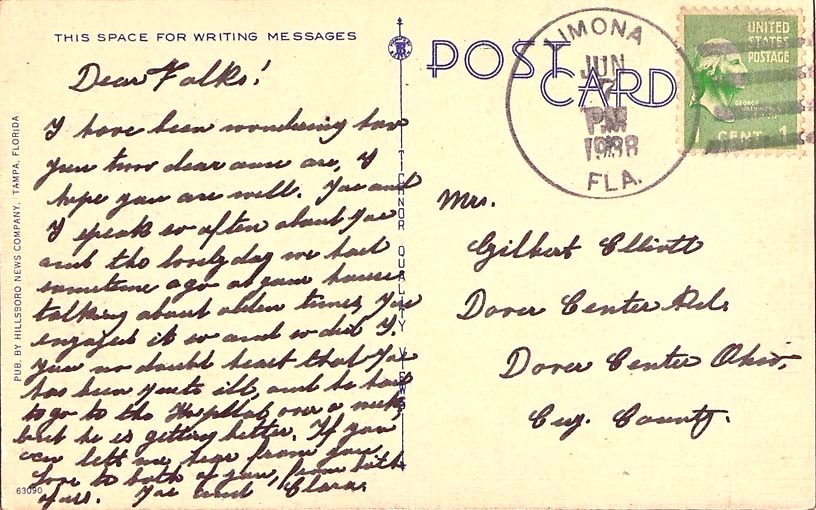 THIS SPACE FOR WRITING MESSAGES
Dear Folks!
I have been wondering how
you two dear ones are, I
hope you are well. Joe and
I speak so often about you
and the lovely day we had
sometime ago at your house
talking about olden times, Joe
enjoyed it so and so did I.
You no doubt heart that Joe
has been quite ill, and he had
to go to the Hospital, over a week,
but he is getting better. If you
can let me hear from you
Love to both of you, from both
of us. Joe and Clara.
63090
PUB. BY HILLSBORO NEWS COMPANY, TAMPA, FLORIDA
TICHNOR QUALITY VIEWS
POST
CARD
LIMONA
JUN
7
PM
1938
FLA.
UNITED
STATES
POSTAGE
GEORGE
WASHINGTON
CENT 1
Mrs.
Gilbert Elliott
Dover Center Rd.
Dover Center Ohio,
Cuy. County.